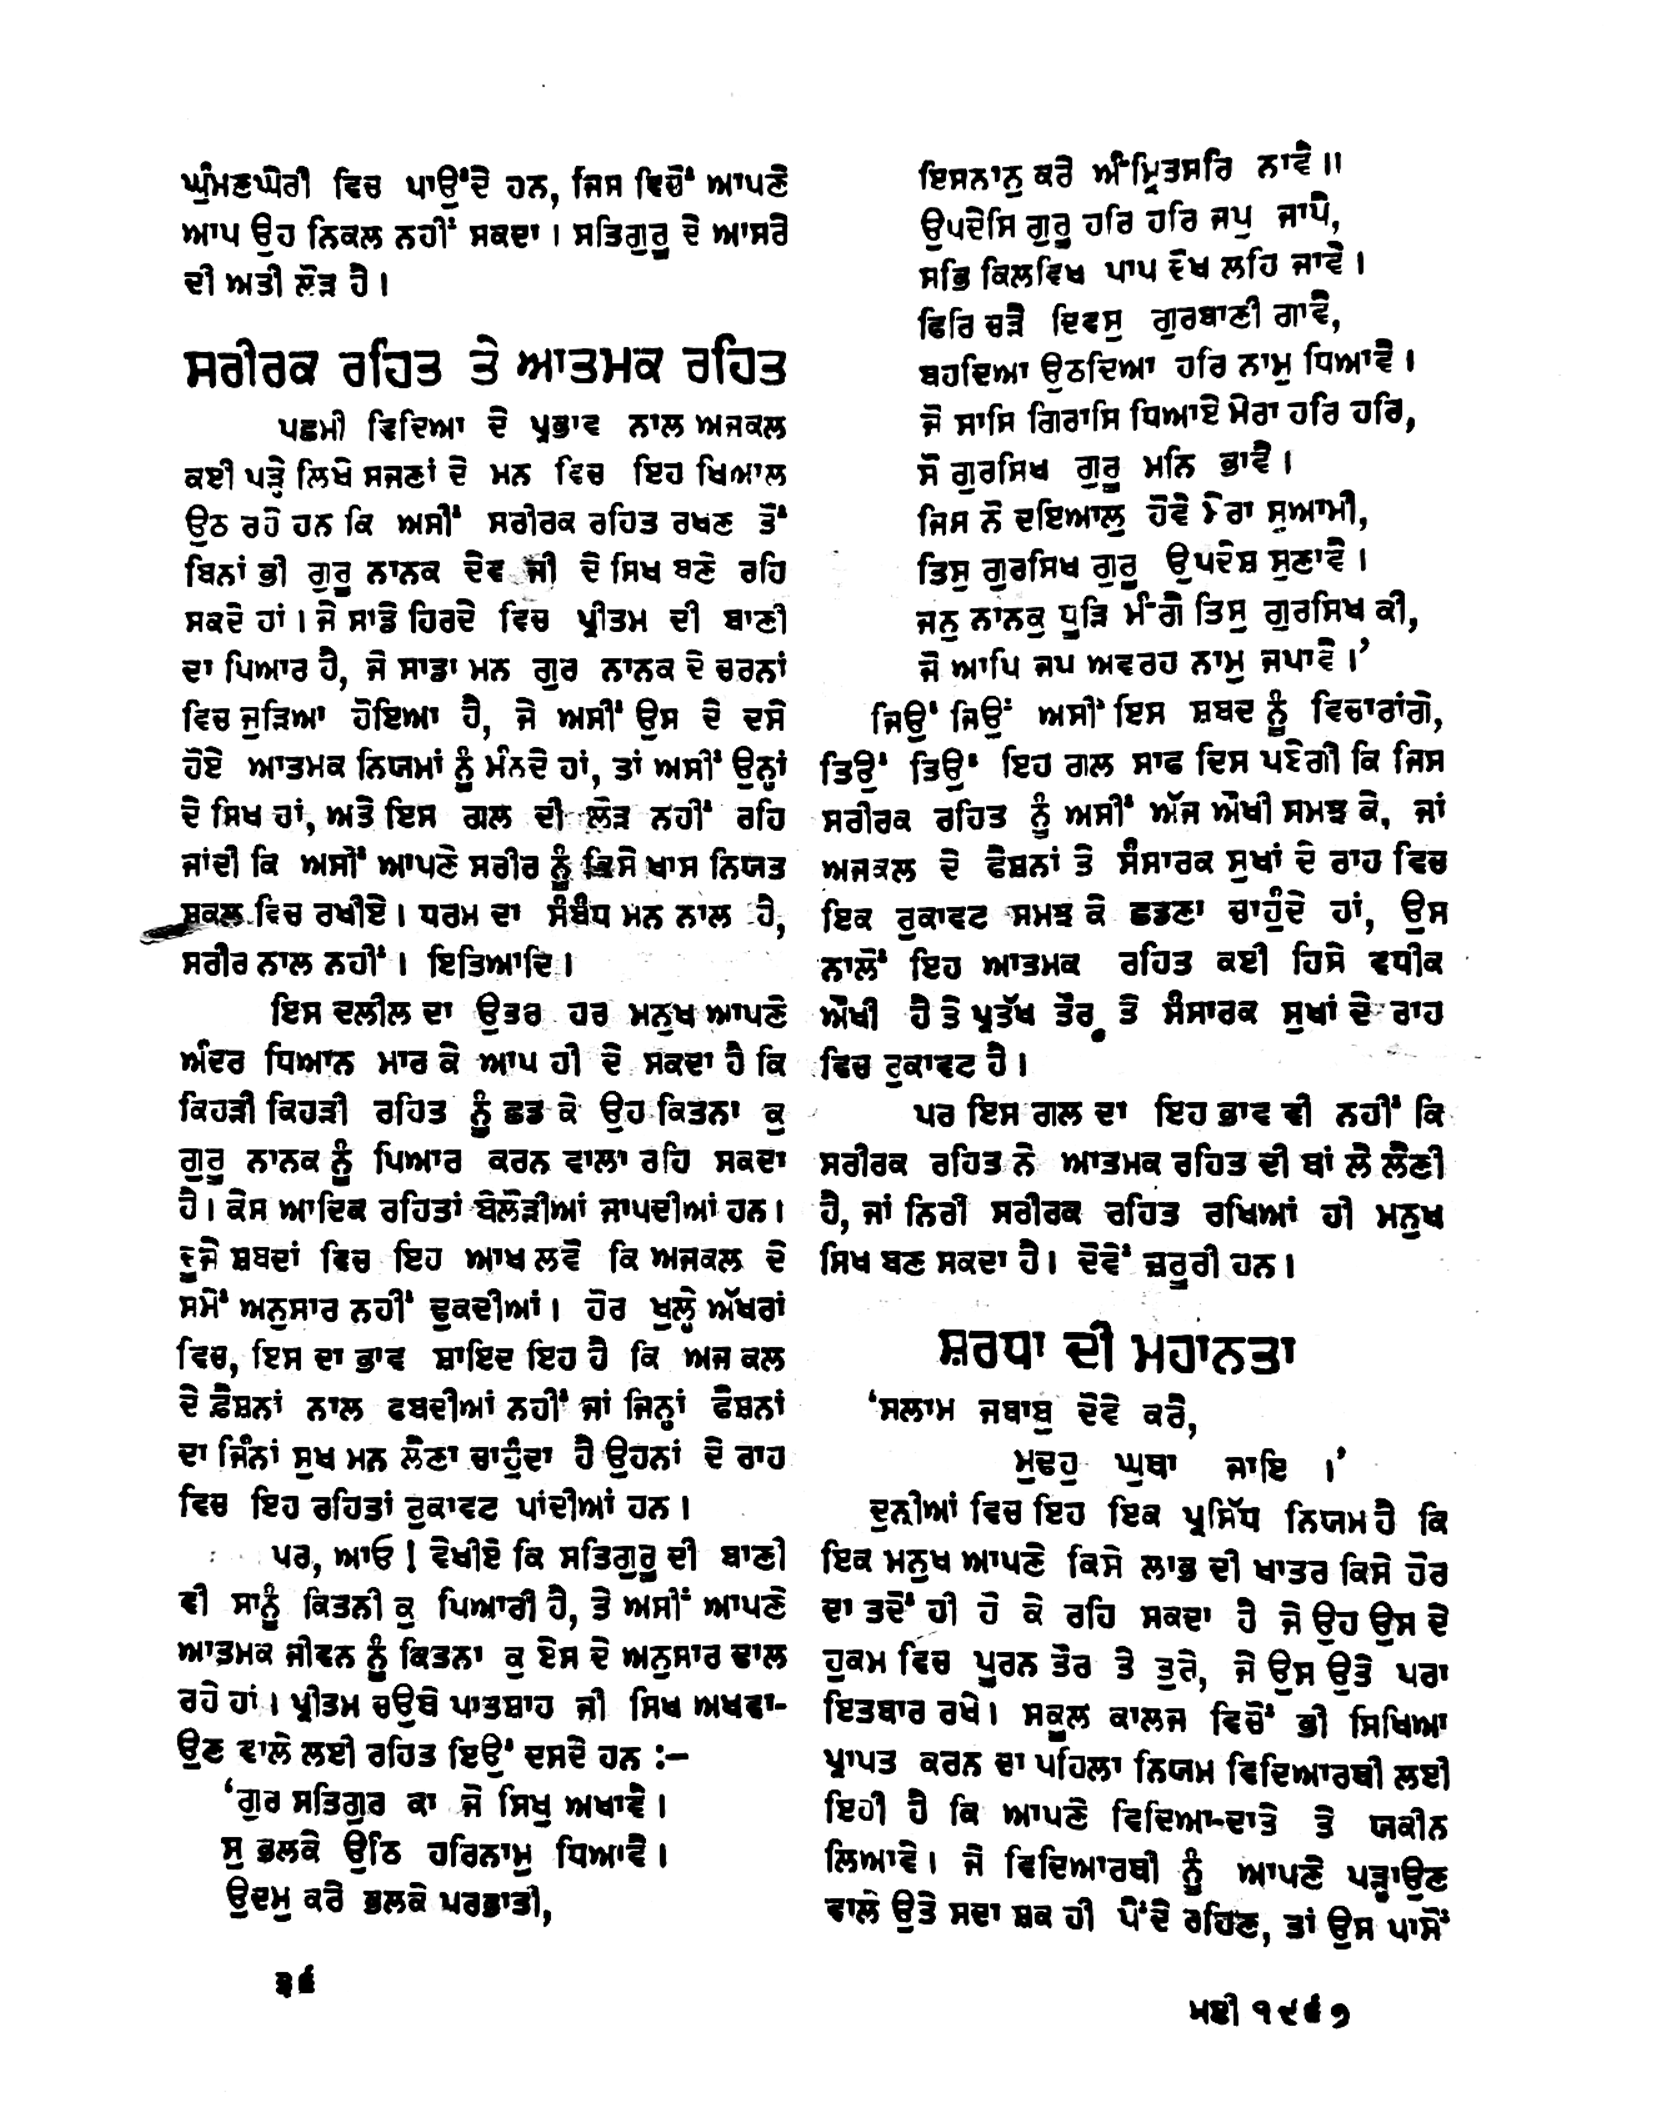 ਘੁੰਮਣਘੇਰੀ ਵਿਚ ਪਾਉਂਦੇ ਹਨ, ਜਿਸ ਵਿਚੋਂ ਆਪਣੇ
ਆਪ ਉਹ ਨਿਕਲ ਨਹੀਂ ਸਕਦਾ। ਸਤਿਗੁਰੂ ਦੇ ਆਸਰੇ
ਦੀ ਅਤੀ ਲੋੜ ਹੈ।
ਸਰੀਰਕ ਰਹਿਤ ਤੇ ਆਤਮਕ ਰਹਿਤ
ਪਛਮੀ ਵਿਦਿਆ ਦੇ ਪ੍ਰਭਾਵ ਨਾਲ ਅਜਕਲ
ਕਈ ਪੜ੍ਹੇ ਲਿਖੇ ਸਜਣਾਂ ਦੇ ਮਨ ਵਿਚ ਇਹ ਖਿਆਲ
ਉਠ ਰਹੇ ਹਨ ਕਿ ਅਸੀਂ ਸਰੀਰਕ ਰਹਿਤ ਰਖਣ ਤੋਂ
ਬਿਨਾਂ ਭੀ ਗੁਰੂ ਨਾਨਕ ਦੇਵ ਜੀ ਦੇ ਸਿਖ ਬਣੇ ਰਹਿ
ਸਕਦੇ ਹਾਂ। ਜੇ ਸਾਡੇ ਹਿਰਦੇ ਵਿਚ ਪ੍ਰੀਤਮ ਦੀ ਬਾਣੀ
ਦਾ ਪਿਆਰ ਹੈ, ਜੇ ਸਾਡਾ ਮਨ ਗੁਰ ਨਾਨਕ ਦੇ ਚਰਨਾਂ
ਵਿਚ ਜੁੜਿਆ ਹੋਇਆ ਹੈ, ਜੇ ਅਸੀਂ ਉਸ ਦੇ ਦਸੇ
ਹੋਏ ਆਤਮਕ ਨਿਯਮਾਂ ਨੂੰ ਮੰਨਦੇ ਹਾਂ, ਤਾਂ ਅਸੀਂ ਉਨ੍ਹਾਂ
ਦੇ ਸਿਖ ਹਾਂ, ਅਤੇ ਇਸ ਗਲ ਦੀ ਲੋੜ ਨਹੀਂ ਰਹਿ
ਜਾਂਦੀ ਕਿ ਅਸੀਂ ਆਪਣੇ ਸਰੀਰ ਨੂੰ ਕਿਸੇ ਖਾਸ ਨਿਯਤ
ਸ਼ਕਲ ਵਿਚ ਰਖੀਏ। ਧਰਮ ਦਾ ਸੰਬੰਧ ਮਨ ਨਾਲ ਹੈ,
ਸਰੀਰ ਨਾਲ ਨਹੀਂ। ਇਤਿਆਦਿ।
ਇਸ ਦਲੀਲ ਦਾ ਉਤਰ ਹਰ ਮਨੁਖ ਆਪਣੇ
ਅੰਦਰ ਧਿਆਨ ਮਾਰ ਕੇ ਆਪ ਹੀ ਦੇ ਸਕਦਾ ਹੈ ਕਿ
ਕਿਹੜੀ ਕਿਹੜੀ ਰਹਿਤ ਨੂੰ ਛਡ ਕੇ ਉਹ ਕਿਤਨਾ ਕੁ
ਗੁਰੂ ਨਾਨਕ ਨੂੰ ਪਿਆਰ ਕਰਨ ਵਾਲਾ ਰਹਿ ਸਕਦਾ
ਹੈ। ਕੇਸ ਆਦਿਕ ਰਹਿਤਾਂ ਬੇਲੋੜੀਆਂ ਜਾਪਦੀਆਂ ਹਨ।
ਦੂਜੇ ਸ਼ਬਦਾਂ ਵਿਚ ਇਹ ਆਖ ਲਵੋ ਕਿ ਅਜਕਲ ਦੇ
ਸਮੇਂ ਅਨੁਸਾਰ ਨਹੀਂ ਢੁਕਦੀਆਂ। ਹੋਰ ਖੁਲ੍ਹੇ ਅੱਖਰਾਂ
ਵਿਚ, ਇਸ ਦਾ ਭਾਵ ਸ਼ਾਇਦ ਇਹ ਹੈ ਕਿ ਅਜ ਕਲ
ਦੇ ਫ਼ੈਸ਼ਨਾਂ ਨਾਲ ਫਬਦੀਆਂ ਨਹੀਂ ਜਾਂ ਜਿਨ੍ਹਾਂ ਫੈਸ਼ਨਾਂ
ਦਾ ਜਿੰਨਾਂ ਸੁਖ ਮਨ ਲੈਣਾ ਚਾਹੁੰਦਾ ਹੈ ਉਹਨਾਂ ਦੇ ਰਾਹ
ਵਿਚ ਇਹ ਰਹਿਤਾਂ ਰੁਕਾਵਟ ਪਾਂਦੀਆਂ ਹਨ।
ਪਰ, ਆਓ! ਵੇਖੀਏ ਕਿ ਸਤਿਗੁਰੂ ਦੀ ਬਾਣੀ
ਵੀ ਸਾਨੂੰ ਕਿਤਨੀ ਕੁ ਪਿਆਰੀ ਹੈ, ਤੇ ਅਸੀਂ ਆਪਣੇ
ਆਤਮਕ ਜੀਵਨ ਨੂੰ ਕਿਤਨਾ ਕੁ ਏਸ ਦੇ ਅਨੁਸਾਰ ਢਾਲ
ਰਹੇ ਹਾਂ। ਪ੍ਰੀਤਮ ਚਉਥੇ ਪਾਤਸ਼ਾਹ ਜੀ ਸਿਖ ਅਖਵਾ-
ਉਣ ਵਾਲੇ ਲਈ ਰਹਿਤ ਇਉਂ ਦਸਦੇ ਹਨ :—
‘ਗੁਰ ਸਤਿਗੁਰ ਕਾ ਜੋ ਸਿਖੁ ਅਖਾਵੈ।
ਸੁ ਭਲਕੇ ਉਠਿ ਹਰਿਨਾਮੁ ਧਿਆਵੈ।
ਉਦਮੁ ਕਰੇ ਭਲਕੇ ਪਰਭਾਤੀ,
੩੬
ਇਸਨਾਨੁ ਕਰੇ ਅੰਮ੍ਰਿਤਸਰਿ ਨਾਵੈ॥
ਉਪਦੇਸਿ ਗੁਰੂ ਹਰਿ ਹਰਿ ਜਪੁ ਜਾਪੈ,
ਸਭਿ ਕਿਲਵਿਖ ਪਾਪ ਦੋਖ ਲਹਿ ਜਾਵੈ।
ਫਿਰਿ ਚੜੈ ਦਿਵਸੁ ਗੁਰਬਾਣੀ ਗਾਵੈ,
ਬਹਦਿਆ ਉਠਦਿਆ ਹਰਿ ਨਾਮੁ ਧਿਆਵੈ।
ਜੋ ਸਾਸਿ ਗਿਰਾਸਿ ਧਿਆਏ ਮੇਰਾ ਹਰਿ ਹਰਿ,
ਸੋ ਗੁਰਸਿਖ ਗੁਰੂ ਮਨਿ ਭਾਵੈ।
ਜਿਸ ਨੋ ਦਇਆਲੁ ਹੋਵੇ ਮੇਰਾ ਸੁਆਮੀ,
ਤਿਸੁ ਗੁਰਸਿਖ ਗੁਰੂ ਉਪਦੇਸ਼ ਸੁਣਾਵੈ।
ਜਨੁ ਨਾਨਕੁ ਧੂੜਿ ਮੰਗੈ ਤਿਸੁ ਗੁਰਸਿਖ ਕੀ,
ਜੋ ਆਪਿ ਜਪ ਅਵਰਹ ਨਾਮੁ ਜਪਾਵੈ।’
ਜਿਉਂ ਜਿਉਂ ਅਸੀਂ ਇਸ ਸ਼ਬਦ ਨੂੰ ਵਿਚਾਰਾਂਗੇ,
ਤਿਉਂ ਤਿਉਂ ਇਹ ਗਲ ਸਾਫ ਦਿਸ ਪਏਗੀ ਕਿ ਜਿਸ
ਸਰੀਰਕ ਰਹਿਤ ਨੂੰ ਅਸੀਂ ਅੱਜ ਔਖੀ ਸਮਝ ਕੇ, ਜਾਂ
ਅਜਕਲ ਦੇ ਫੈਸ਼ਨਾਂ ਤੇ ਸੰਸਾਰਕ ਸੁਖਾਂ ਦੇ ਰਾਹ ਵਿਚ
ਇਕ ਰੁਕਾਵਟ ਸਮਝ ਕੇ ਛਡਣਾ ਚਾਹੁੰਦੇ ਹਾਂ, ਉਸ
ਨਾਲੋਂ ਇਹ ਆਤਮਕ ਰਹਿਤ ਕਈ ਹਿਸੇ ਵਧੀਕ
ਔਖੀ ਹੈ ਤੇ ਪ੍ਰਤੱਖ ਤੌਰ ਤੇ ਸੰਸਾਰਕ ਸੁਖਾਂ ਦੇ ਰਾਹ
ਵਿਚ ਰੁਕਾਵਟ ਹੈ।
ਪਰ ਇਸ ਗਲ ਦਾ ਇਹ ਭਾਵ ਵੀ ਨਹੀਂ ਕਿ
ਸਰੀਰਕ ਰਹਿਤ ਨੇ ਆਤਮਕ ਰਹਿਤ ਦੀ ਥਾਂ ਲੈ ਲੈਣੀ
ਹੈ, ਜਾਂ ਨਿਰੀ ਸਰੀਰਕ ਰਹਿਤ ਰਖਿਆਂ ਹੀ ਮਨੁਖ
ਸਿਖ ਬਣ ਸਕਦਾ ਹੈ। ਦੋਵੇਂ ਜ਼ਰੂਰੀ ਹਨ।
ਸ਼ਰਧਾ ਦੀ ਮਹਾਨਤਾ
‘ਸਲਾਮ ਜਬਾਬੁ ਦੋਵੇ ਕਰੇ,
ਮੁਢਹੁ ਘੁਥਾ ਜਾਇ।’
ਦੁਨੀਆਂ ਵਿਚ ਇਹ ਇਕ ਪ੍ਰਸਿੱਧ ਨਿਯਮ ਹੈ ਕਿ
ਇਕ ਮਨੁਖ ਆਪਣੇ ਕਿਸੇ ਲਾਭ ਦੀ ਖਾਤਰ ਕਿਸੇ ਹੋਰ
ਦਾ ਤਦੋਂ ਹੀ ਹੋ ਕੇ ਰਹਿ ਸਕਦਾ ਹੈ ਜੇ ਉਹ ਉਸ ਦੇ
ਹੁਕਮ ਵਿਚ ਪੂਰਨ ਤੌਰ ਤੇ ਤੁਰੇ, ਜੇ ਉਸ ਉਤੇ ਪਰਾ
ਇਤਬਾਰ ਰਖੇ। ਸਕੂਲ ਕਾਲਜ ਵਿਚੋਂ ਭੀ ਸਿਖਿਆ
ਪ੍ਰਾਪਤ ਕਰਨ ਦਾ ਪਹਿਲਾ ਨਿਯਮ ਵਿਦਿਆਰਥੀ ਲਈ
ਇਹੀ ਹੈ ਕਿ ਆਪਣੇ ਵਿਦਿਆ-ਦਾਤੇ ਤੇ ਯਕੀਨ
ਲਿਆਵੇ। ਜੇ ਵਿਦਿਆਰਥੀ ਨੂੰ ਆਪਣੇ ਪੜ੍ਹਾਉਣ
ਵਾਲੇ ਉਤੇ ਸਦਾ ਸ਼ਕ ਹੀ ਪੈਂਦੇ ਰਹਿਣ, ਤਾਂ ਉਸ ਪਾਸੋਂ
ਮਈ ੧੯੬੧